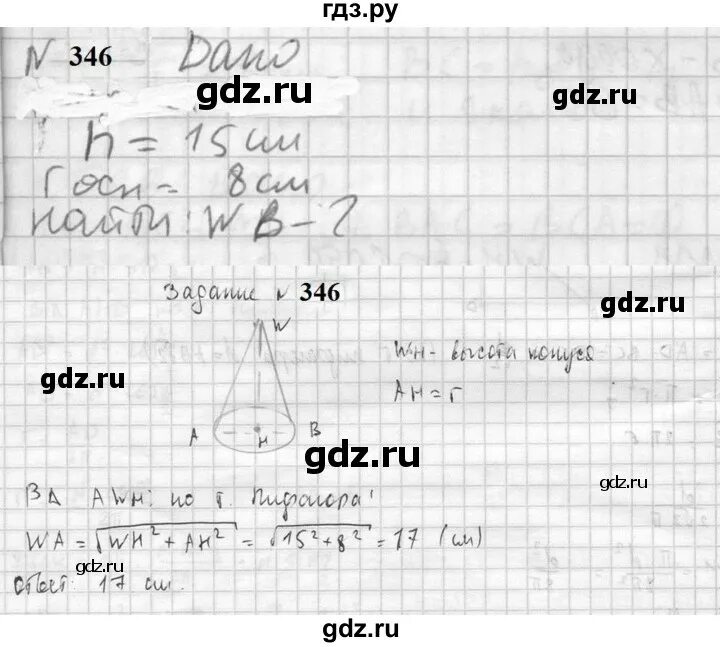 гдз.ру
N 346 Дано
gdz.ru
h = 15 см
rосн = 8 см
gdz.ru
найти: WB - ?
Задание N 346
W
gdz.ru
WH - высота конуса
gdz.ru
AH = r
A H B
gdz.ru
gdz.ru
В Δ AWH: по т. Пифагора:
WA = √WH² + AH² = √15² + 8² = 17 (см)
gdz.ru
ответ: 17 см.
gdz.ru